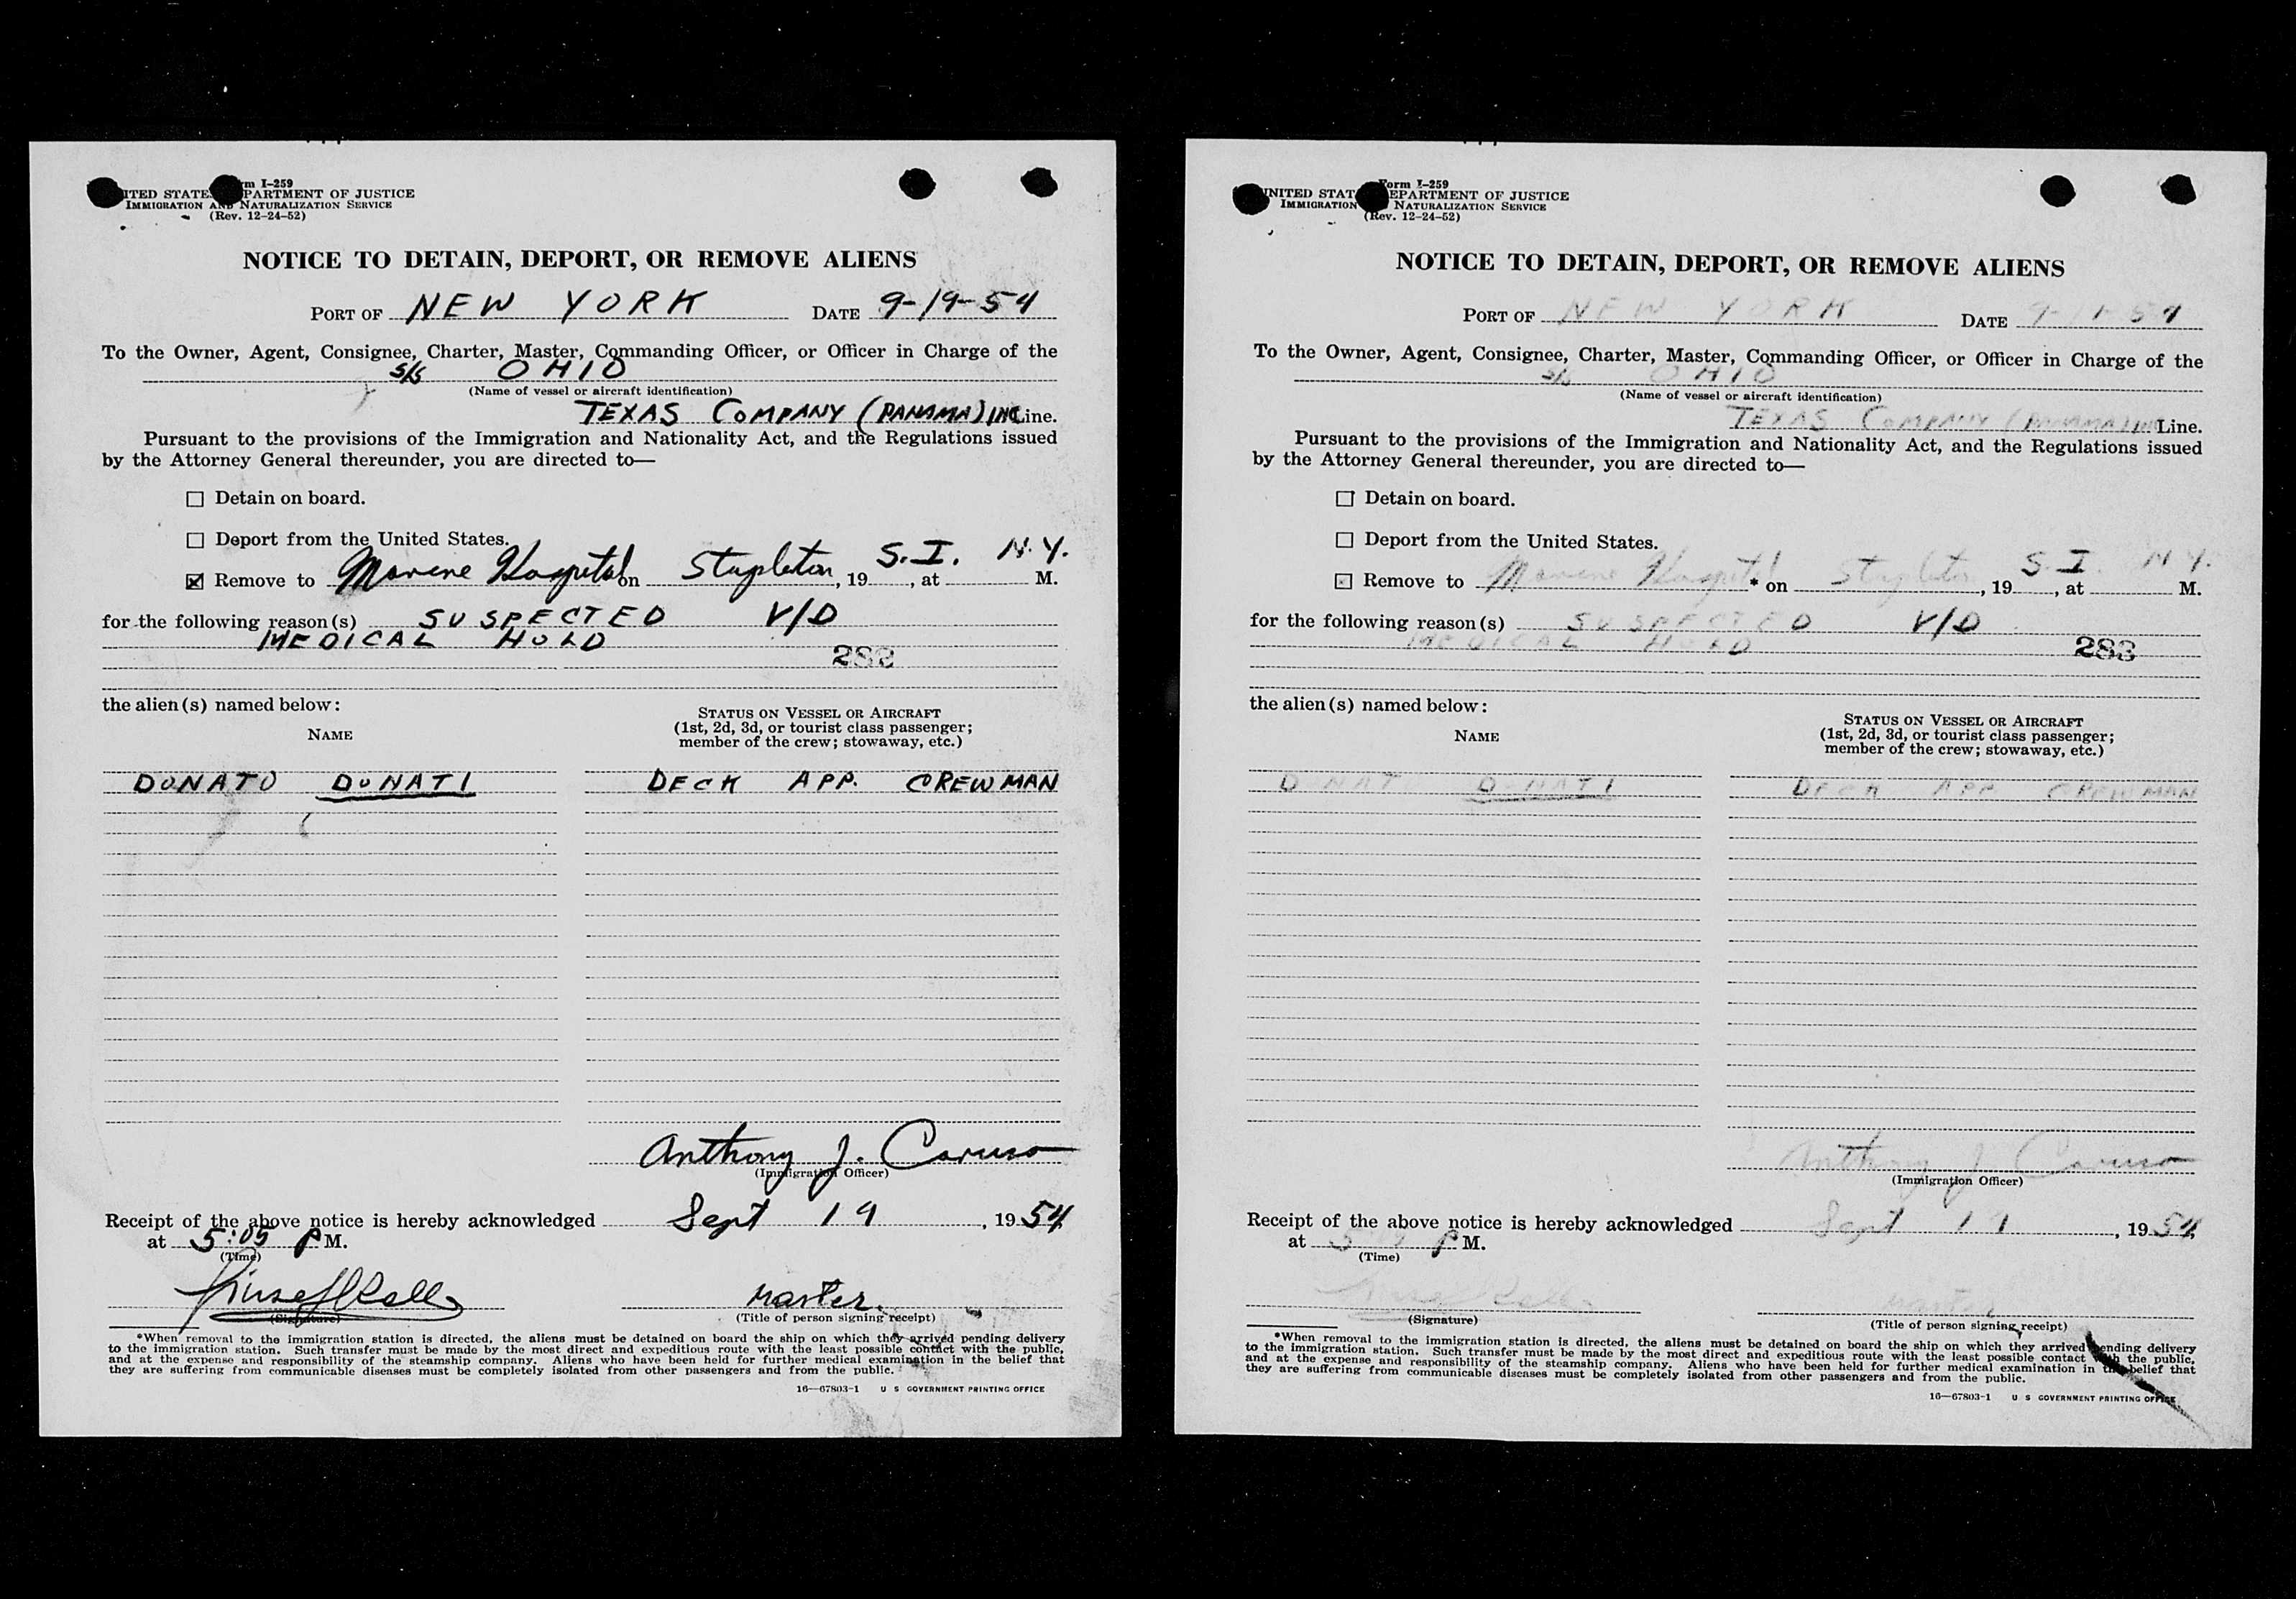 Form I-259
UNITED STATES DEPARTMENT OF JUSTICE
IMMIGRATION AND NATURALIZATION SERVICE
(Rev. 12-24-52)
NOTICE TO DETAIN, DEPORT, OR REMOVE ALIENS
PORT OF NEW YORK DATE 9-19-54
To the Owner, Agent, Consignee, Charter, Master, Commanding Officer, or Officer in Charge of the
S/S OHIO
(Name of vessel or aircraft identification)
TEXAS COMPANY (PANAMA) INC Line.
Pursuant to the provisions of the Immigration and Nationality Act, and the Regulations issued
by the Attorney General thereunder, you are directed to—
☐ Detain on board.
☐ Deport from the United States.
☒ Remove to Marine Hospital on Stapleton, 19 , at S.I. N.Y. M.
for the following reason(s) SUSPECTED V/D
MEDICAL HOLD
283
the alien(s) named below:
NAME
STATUS ON VESSEL OR AIRCRAFT
(1st, 2d, 3d, or tourist class passenger;
member of the crew; stowaway, etc.)
DONATO DONATI DECK APP. CREWMAN
Anthony J. Caruso
(Immigration Officer)
Receipt of the above notice is hereby acknowledged Sept 19, 1954
at 5:05 P M.
(Time)
Master
(Signature) (Title of person signing receipt)
*When removal to the immigration station is directed, the aliens must be detained on board the ship on which they arrived pending delivery
to the immigration station. Such transfer must be made by the most direct and expeditious route with the least possible contact with the public,
and at the expense and responsibility of the steamship company. Aliens who have been held for further medical examination in the belief that
they are suffering from communicable diseases must be completely isolated from other passengers and from the public.
16—67803-1 U S GOVERNMENT PRINTING OFFICE
Form I-259
UNITED STATES DEPARTMENT OF JUSTICE
IMMIGRATION NATURALIZATION SERVICE
(Rev. 12-24-52)
NOTICE TO DETAIN, DEPORT, OR REMOVE ALIENS
PORT OF NEW YORK DATE 9-19-54
To the Owner, Agent, Consignee, Charter, Master, Commanding Officer, or Officer in Charge of the
S/S OHIO
(Name of vessel or aircraft identification)
TEXAS COMPANY (PANAMA) INC Line.
Pursuant to the provisions of the Immigration and Nationality Act, and the Regulations issued
by the Attorney General thereunder, you are directed to—
☐ Detain on board.
☐ Deport from the United States.
☒ Remove to Marine Hospital * on Stapleton, 19 , at S.I. N.Y. M.
for the following reason(s) SUSPECTED V/D
MEDICAL HOLD
283
the alien(s) named below:
NAME
STATUS ON VESSEL OR AIRCRAFT
(1st, 2d, 3d, or tourist class passenger;
member of the crew; stowaway, etc.)
DONATO DONATI DECK APP. CREWMAN
Anthony J. Caruso
(Immigration Officer)
Receipt of the above notice is hereby acknowledged Sept 19, 1954
at 5:05 P M.
(Time)
Master
(Signature) (Title of person signing receipt)
*When removal to the immigration station is directed, the aliens must be detained on board the ship on which they arrived pending delivery
to the immigration station. Such transfer must be made by the most direct and expeditious route with the least possible contact with the public,
and at the expense and responsibility of the steamship company. Aliens who have been held for further medical examination in the belief that
they are suffering from communicable diseases must be completely isolated from other passengers and from the public.
16—67803-1 U S GOVERNMENT PRINTING OFFICE